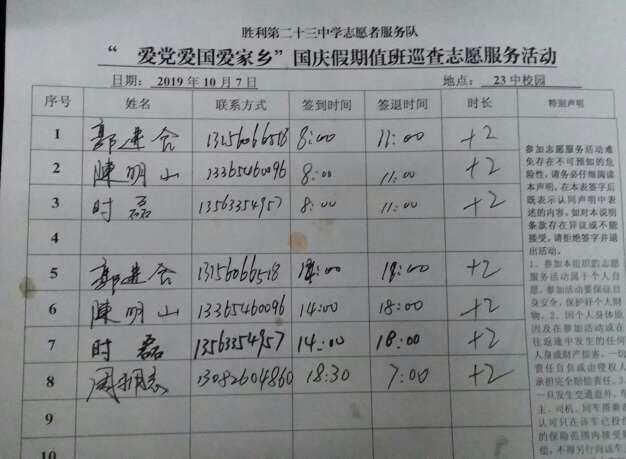 胜利第二十三中学志愿者服务队
“爱党爱国爱家乡”国庆假期值班巡查志愿服务活动
日期：2019年10月7日 地点：23中校园
序号 姓名 联系方式 签到时间 签退时间 时长 特别声明
1 郭建合 13156066518 8:00 11:00 +2
2 陳明山 13365460096 8:00 11:00 +2
3 时磊 13563354957 8:00 11:00 +2
4
5 郭建合 13156066518 14:00 18:00 +2
6 陳明山 13365460096 14:00 18:00 +2
7 时磊 13563354957 14:00 18:00 +2
8 周 13082604860 18:30 7:00 +2
9
10
参加志愿服务活动难
免存在不可预知的危
险性，请务必仔细阅读
本声明。在本表签字后
既表示认同声明中表
述的内容。如对本说明
条款存在异议或不能
接受，请拒绝签字并退
出活动。
1、参加本组织的志愿
服务活动属于个人自
愿。参加活动要保证自
身安全，保护好个人财
物。2、因个人身体原
因及在参加活动或在
往返途中发生的任何
人身或财产损害，一切
责任自负或由侵权人
承担完全赔偿责任。3、
一旦发生交通意外，车
主、司机、同车搭乘者
认可只在该车已投保
的保险范围内接受赔
偿，不得另行向该车